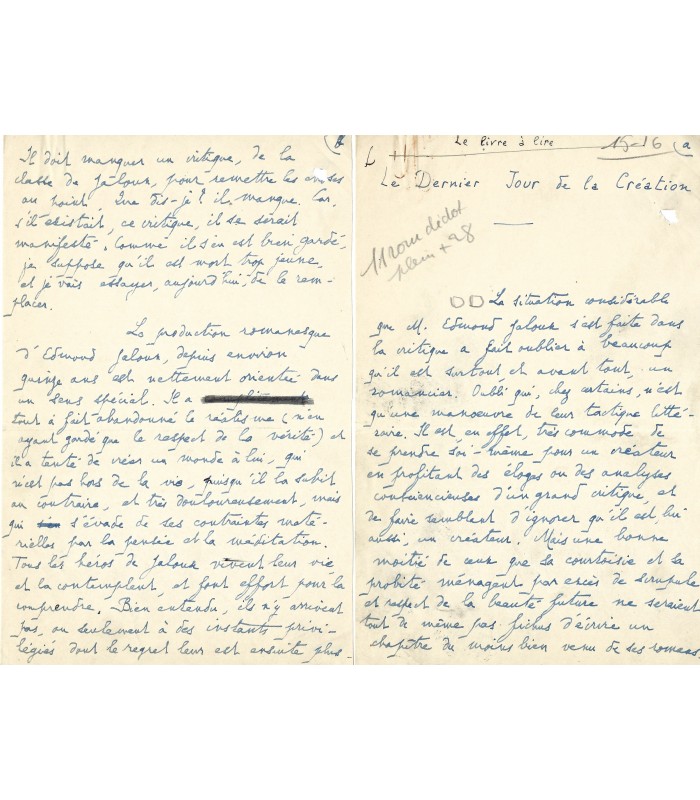 Il doit manquer un critique, de la
classe de Jaloux, pour remettre les choses
au point. Que dis-je ? il manque. Car,
s'il existait, ce critique, il se serait
manifesté. Comme il s'en est bien gardé,
je suppose qu'il est mort trop jeune,
et je vais essayer, aujourd'hui, de le rem-
placer.
La production romanesque
d'Edmond Jaloux, depuis environ
quinze ans est nettement orientée dans
un sens spécial. Il a
tout à fait abandonné le réalisme (n'en
ayant gardé que le respect de la vérité) et
il a tenté de créer un monde à lui, qui
n'est pas hors de la vie, puisqu'il la subit
au contraire, et très douloureusement, mais
qui s'évade de ses contraintes maté-
rielles par la pensée et la méditation.
Tous les héros de Jaloux vivent leur vie
et la contemplent, et font effort pour la
comprendre. Bien entendu, ils n'y arrivent
pas, ou seulement à des instants privi-
légiés dont le regret leur est ensuite plus
Le livre à lire
15-16 a
Le Dernier Jour de la Création
11 rom didot
plein + 28
La situation considérable
que M. Edmond Jaloux s'est faite dans
la critique a fait oublier à beaucoup
qu'il est surtout et avant tout, un
romancier. Oubli qui, chez certains, n'est
qu'une manoeuvre de leur tactique litté-
raire. Il est, en effet, très commode de
se prendre soi-même pour un créateur
en profitant des éloges ou des analyses
consciencieuses d'un grand critique, et
de faire semblant d'ignorer qu'il est, lui
aussi, un créateur. Mais une bonne
moitié de ceux que sa courtoisie et la
probité ménagent par excès de scrupule
et respect de la beauté future ne seraient
tout de même pas fichus d'écrire un
chapitre du moins bien venu de ses romans.